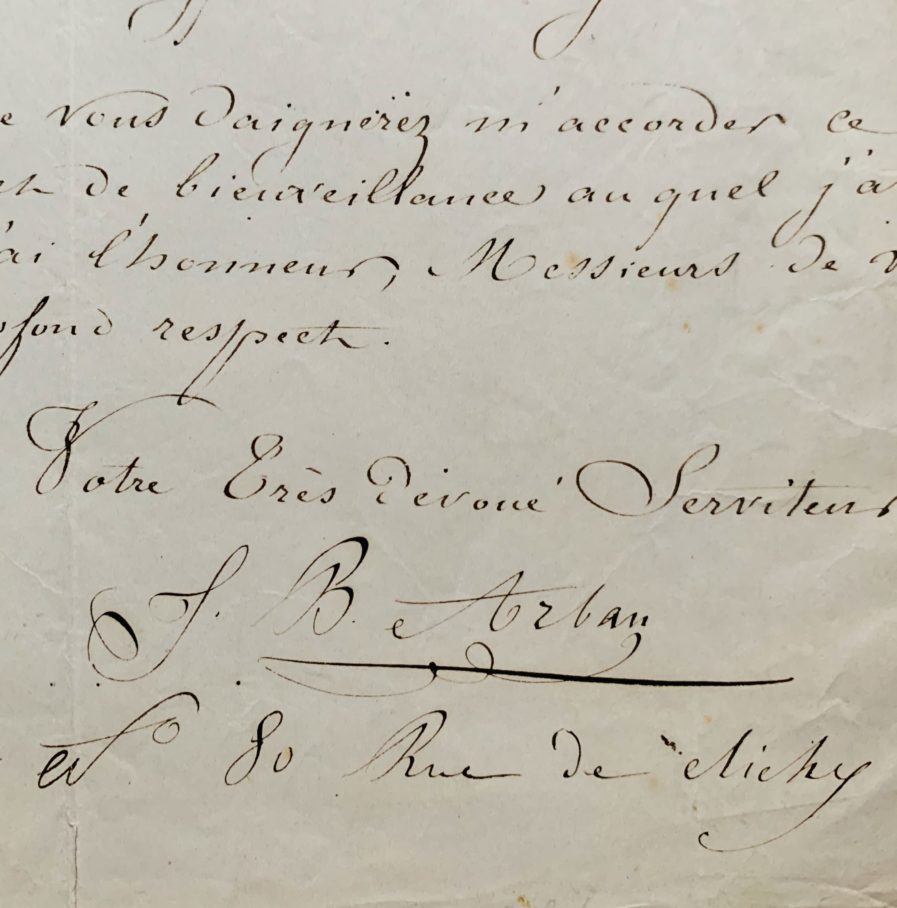 e vous daignerez m'accorder ce
et de bienveillance au quel j'a
'ai l'honneur, Messieurs de v
ofond respect.
Votre Très dévoué Serviteur
J. B. Arban
No 80 Rue de Clichy